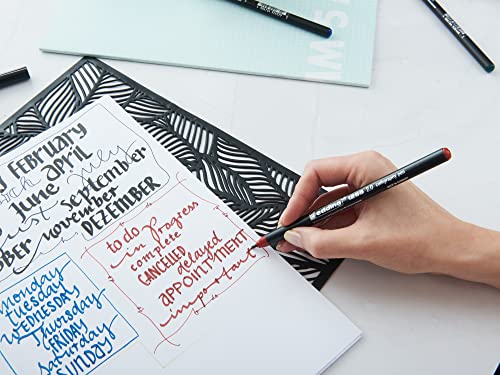 February
june april
july
september
november
DEZEMBER
to do
in progress
complete
CANCELLED
delayed
APPOINTMENT
important
monday
TUESDAY
WEDNESDAY
Thursday
FRIDAY
saturday
SUNDAY
edding 1255 2.0 calligraphy pen